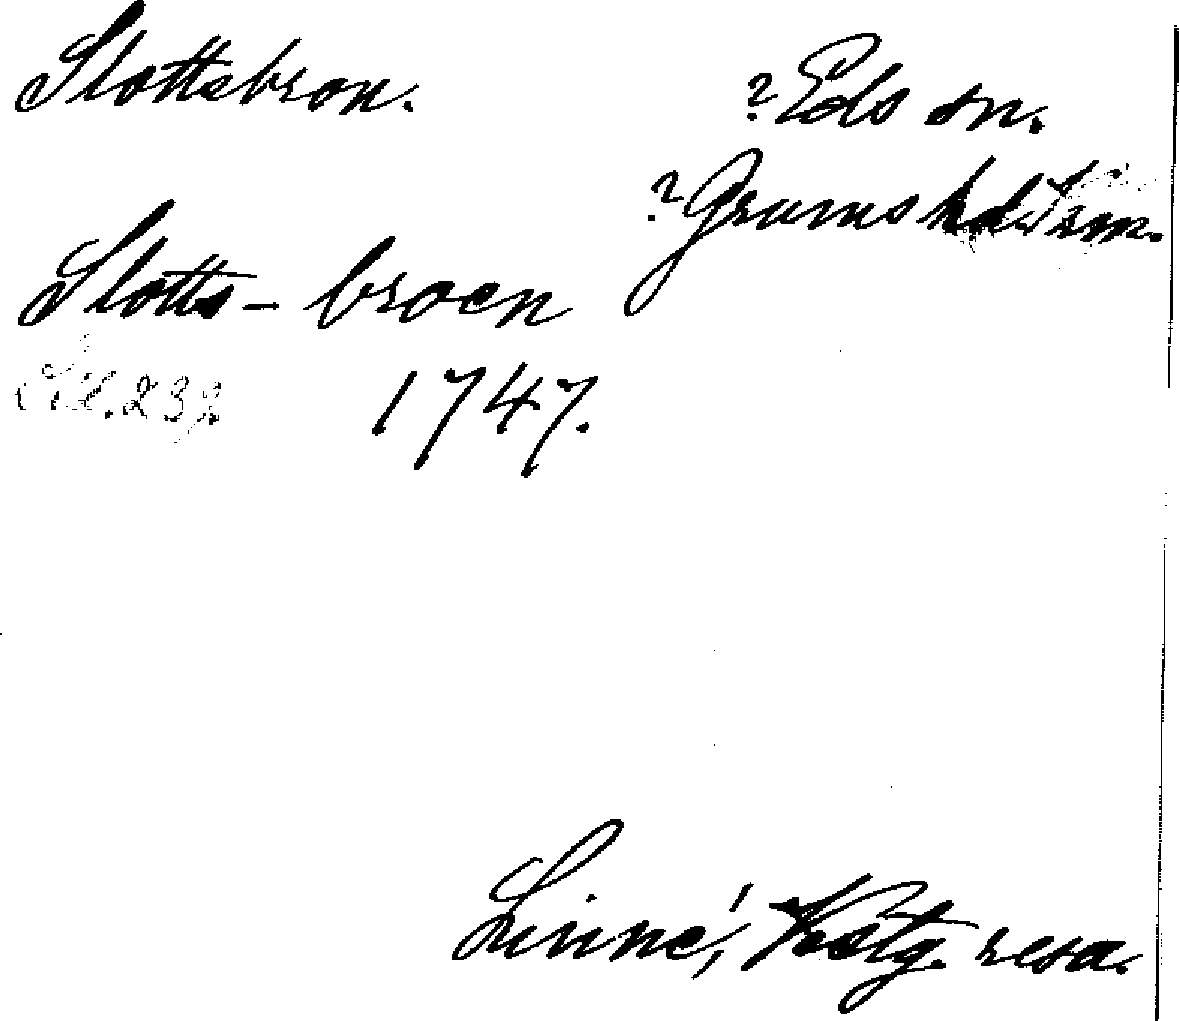 Slottsbron.
? Eds sn.
? Grums hd. Vrm.
Slotts-broen
1747.
Linné, Vestg. resa.